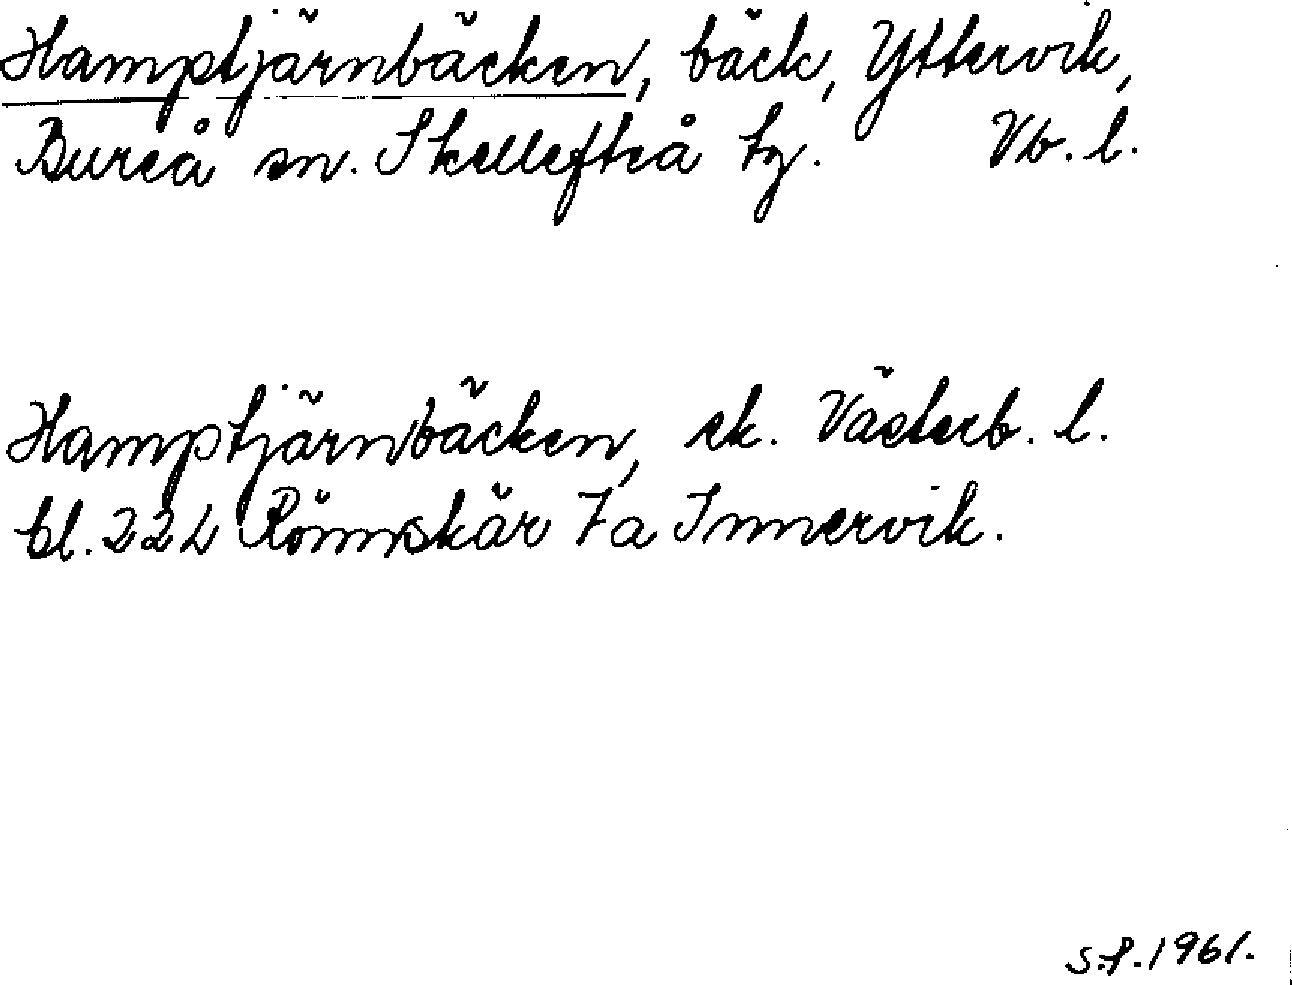 Hamptjärnbäcken, bäck, Yttervik,
Bureå sn. Skellefteå tg. Vb. l.
Hamptjärnbäcken, ek. Västerb. l.
bl. 22L Rönnskär 7a Innervik.
S.P. 1961.